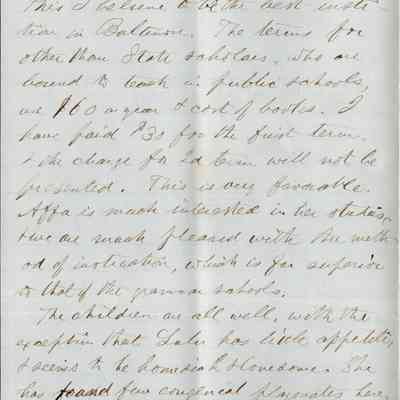 This I believe to be the best insti-
tion in Baltimore. The terms for
other than State scholars, who are
bound to teach in public schools,
are $60 a year & cost of books. I
have paid $30 for the first term.
& the charge for 2d term will not be
presented. This is very favorable.
Affa is much interested in her studies,
& we are much pleased with the meth-
od of instruction, which is far superior
to that of the grammar schools.
The children are all well, with the
exception that Lulu has little appetite,
& seems to be homesick & lonesome. She
has found few congenial playmates here,